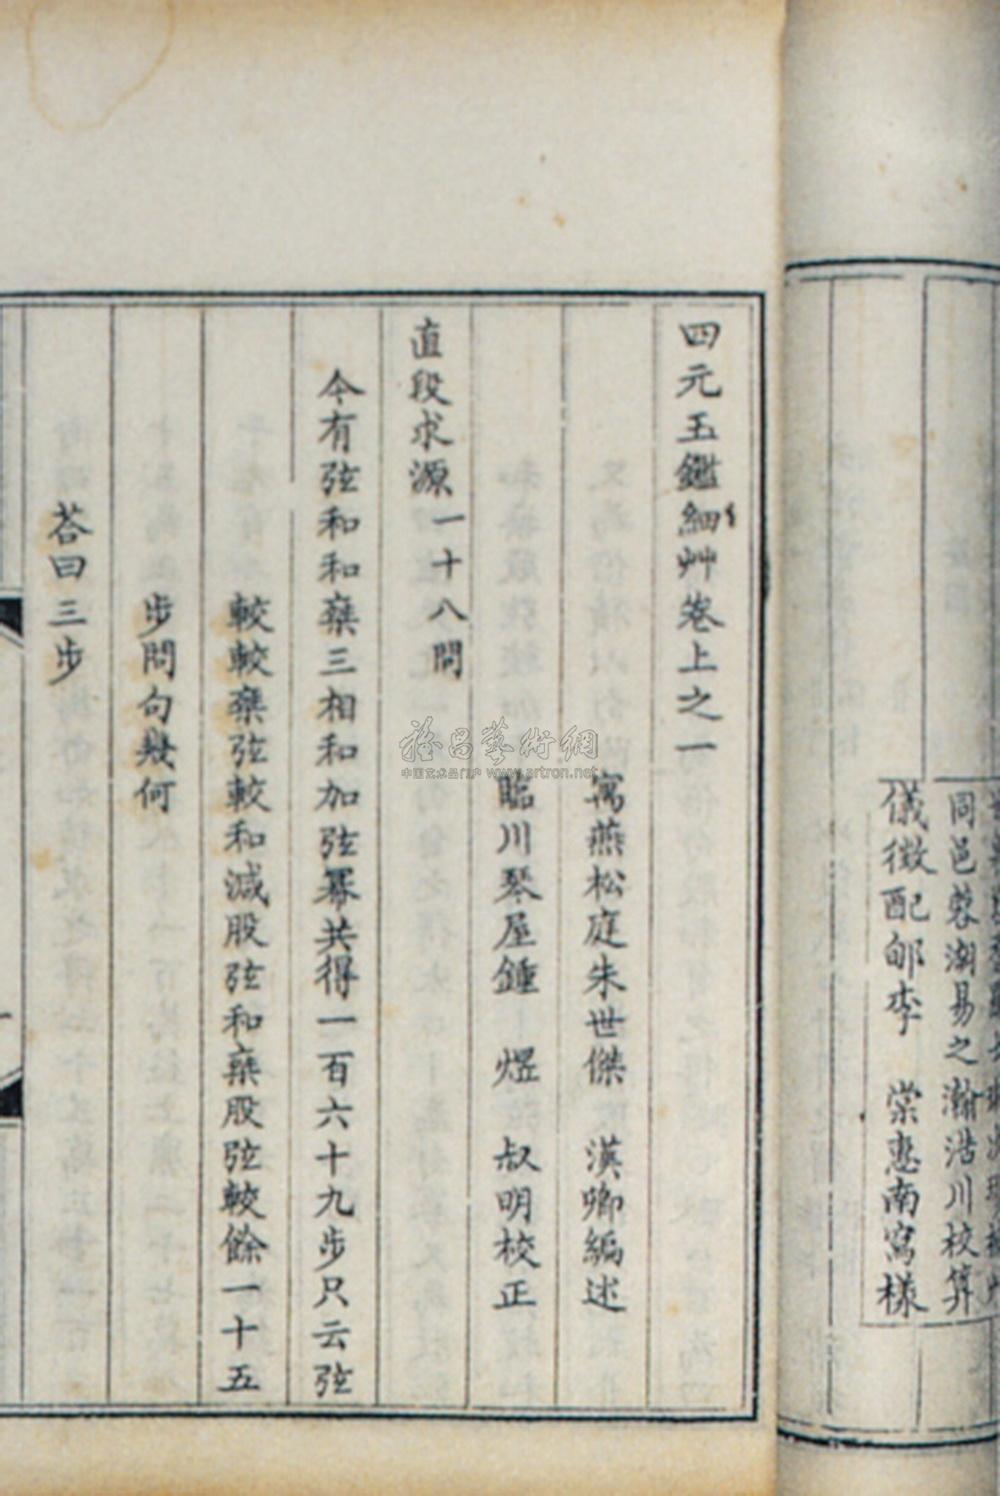 同邑蓉湖易之瀚浩川校算
儀徵配邱李 棠惠南寫樣
四元玉鑑細艸卷上之一
寓燕松庭朱世傑 漢卿編述
臨川琴屋鍾 煜 叔明校正
直段求源一十八問
今有弦和和乘三相和加弦冪共得一百六十九步只云弦
較較乘弦較和減股弦和乘股弦較餘一十五
步問句幾何
荅曰三步
雅昌藝術網
中国艺术品门户 www.artron.net